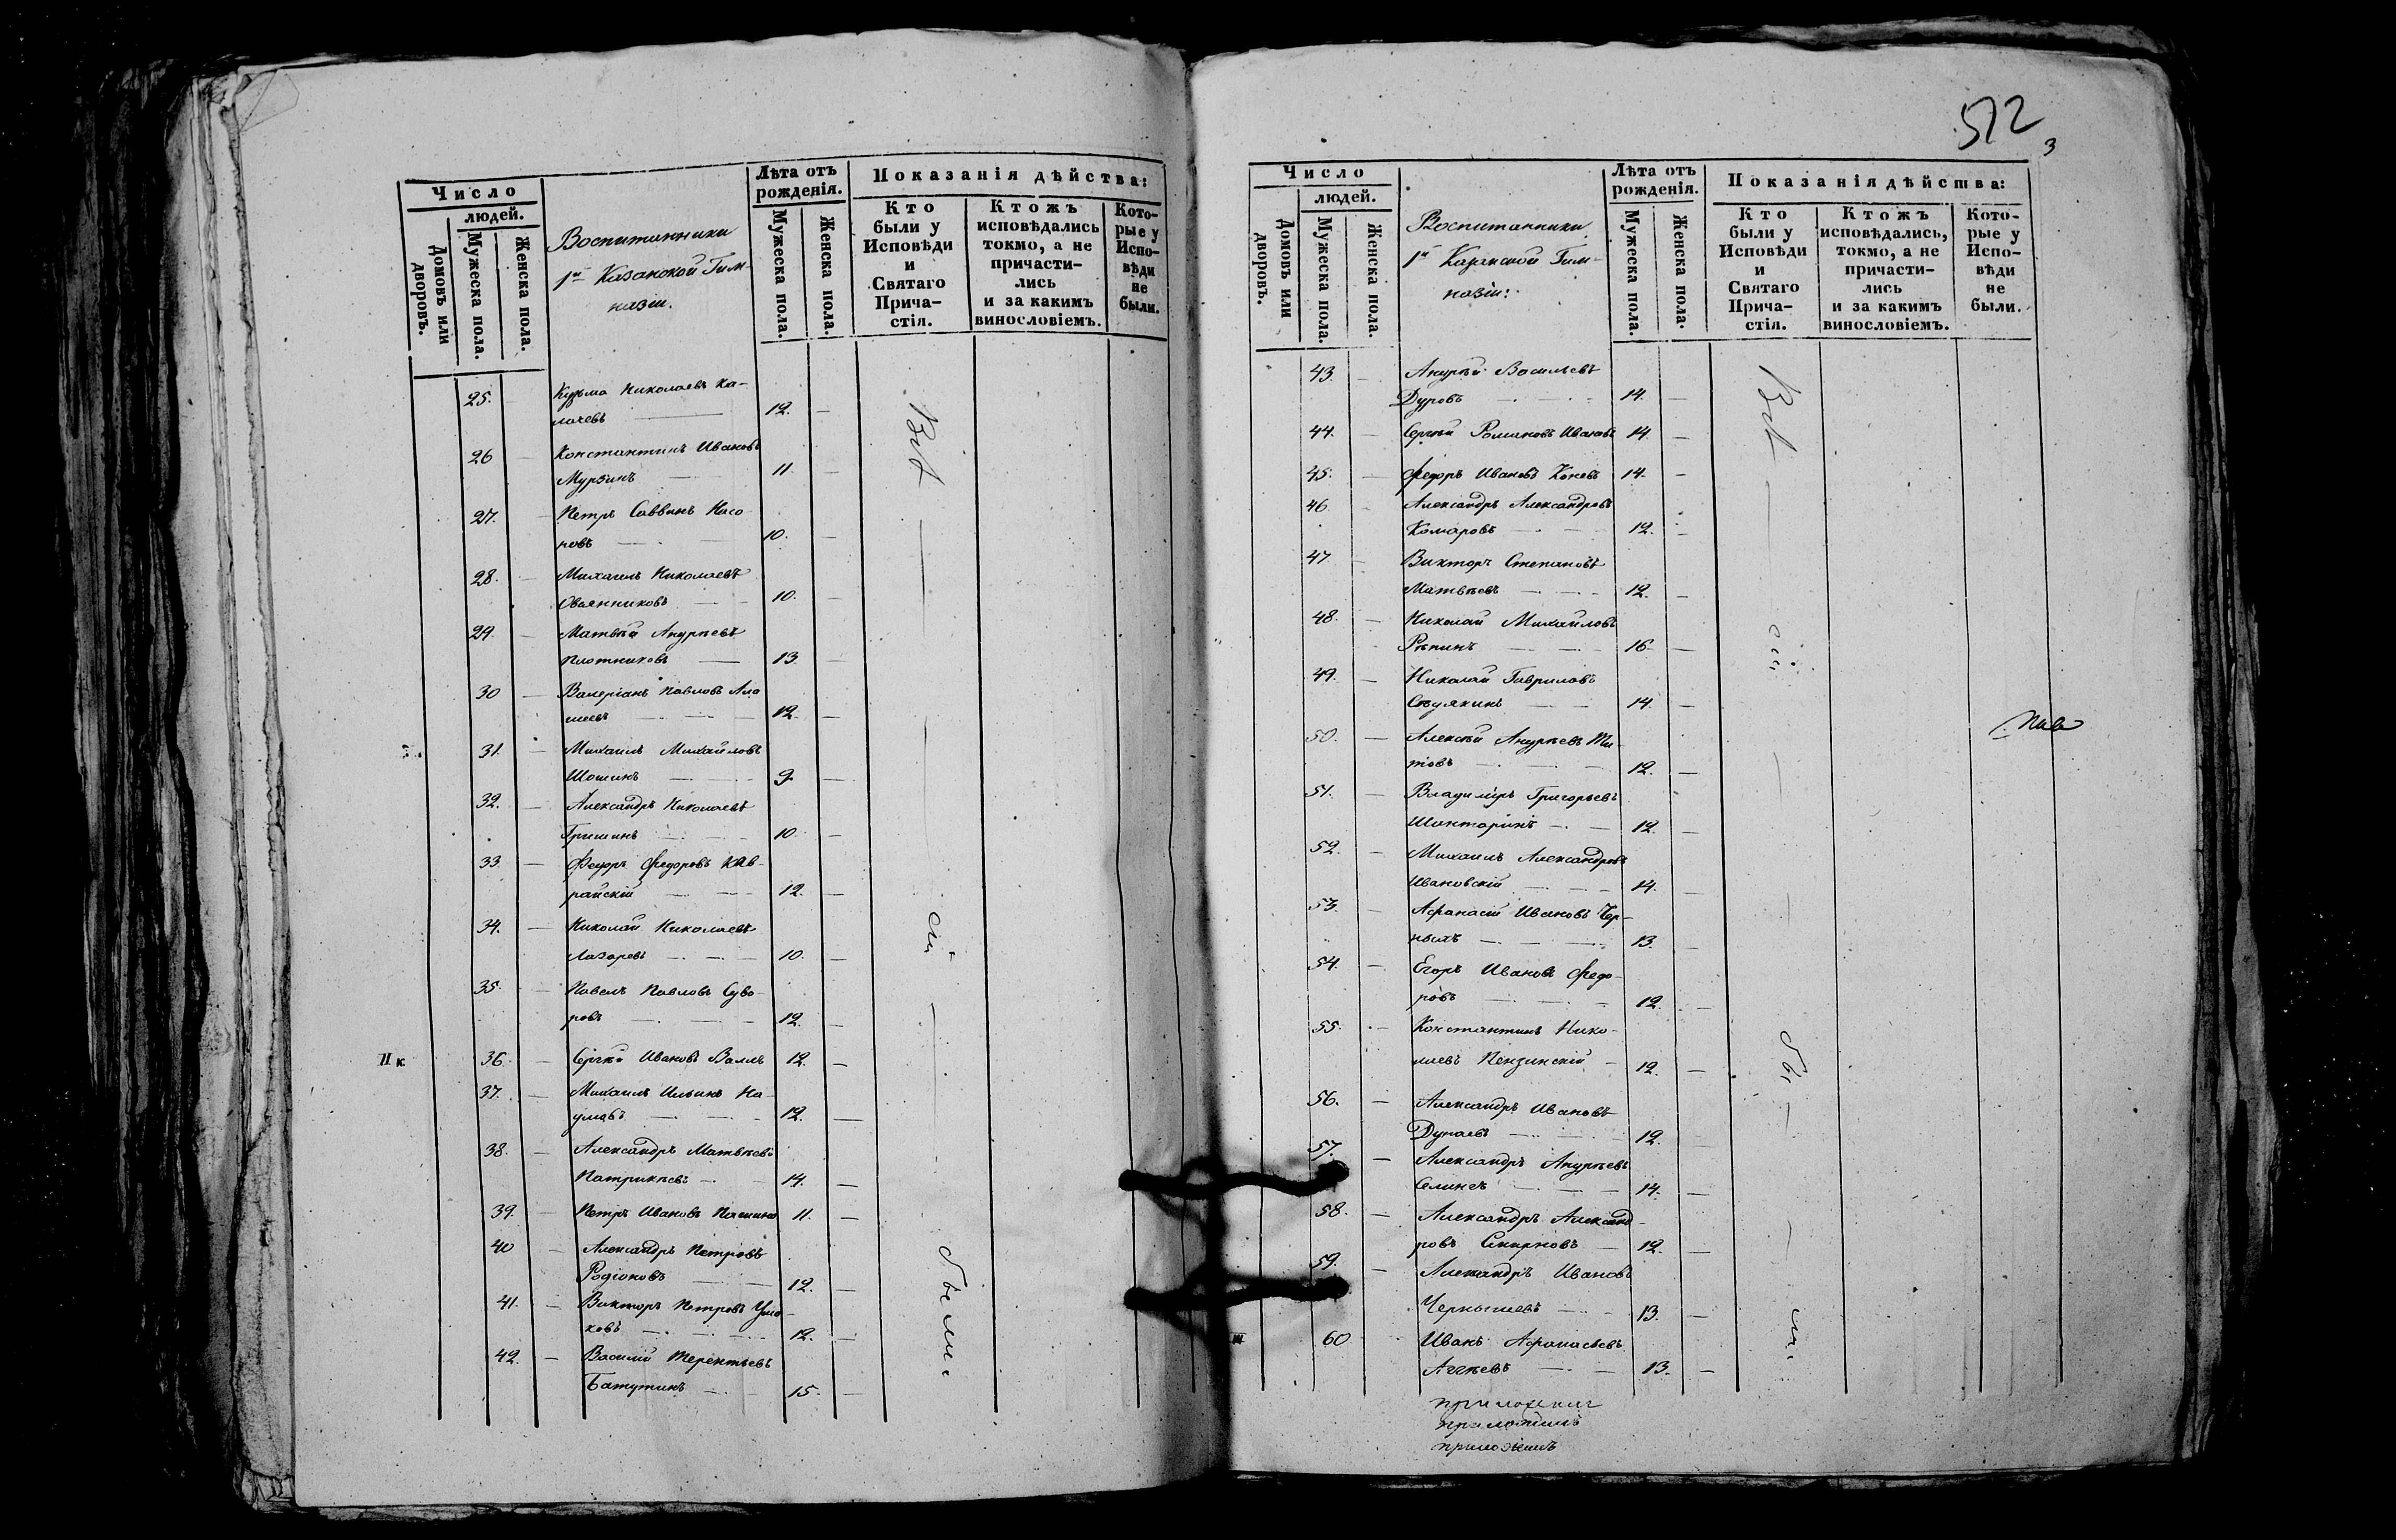 Число
людей.
Домовъ или дворовъ.
Мужеска пола.
Женска пола.
Воспитанники
1й Казанской Гим-
назіи.
Лѣта отъ рожденія.
Мужеска пола.
Женска пола.
Показанія дѣйства:
Кто были у Исповѣди и Святаго Прича- стія.
Ктожъ исповѣдались токмо, а не причасти- лись и за какимъ винословіемъ.
Кото- рые у Испо- вѣди не были.
25. — Кузьма Николаевъ Ка-
лачевъ — 12. —
26 — Константинъ Ивановъ
Мурзинъ — 11. —
27. — Петръ Саввинъ
10. —
28. — Михаилъ Николаевъ
Овсянниковъ — 10. —
29. — Матвѣй Андреевъ
Плотниковъ — 13. —
30 — Валеріанъ Павловъ
12. —
31. — Михаилъ Михайловъ
Шошинъ — 9. —
32. — Александръ Николаевъ
Гришинъ — 10. —
33 — Федоръ Федоровъ Кав-
райскій — 12. —
34. — Николай Николаевъ
Лазаревъ — 10. —
35. — Павелъ Павловъ Суво-
ровъ — 12. —
36. — Сергѣй Ивановъ 12. —
37. — Михаилъ Ильинъ На-
умовъ — 12. —
38. — Александръ Матвѣевъ
Патрикѣевъ — 14. —
39. — Петръ Ивановъ Пашинъ 11. —
40 — Александръ Петровъ
Родіоновъ — 12. —
41. — Викторъ Петровъ Уша-
ковъ — 12. —
42. — Василій Терентьевъ
Батутинъ — 15. —
Всѣ — сіи — были
572
3
Число
людей.
Домовъ или дворовъ.
Мужеска пола.
Женска пола.
Воспитанники
1й Казанской Гим-
назіи:
Лѣта отъ рожденія.
Мужеска пола.
Женска пола.
Показанія дѣйства:
Кто были у Исповѣди и Святаго Прича- стія.
Ктожъ исповѣдались, токмо, а не причасти- лись и за какимъ винословіемъ.
Кото- рые у Испо- вѣди не были.
43. — Андрей Васильевъ
Дуровъ — 14. —
44. — Сергѣй Романовъ Ивановъ 14. —
45. — Федоръ Ивановъ Коневъ 14. —
46. — Александръ Александровъ
Комаровъ — 12. —
47 — Викторъ Степановъ
Матвѣевъ — 12. —
48. — Николай Михайловъ
Рѣпинъ — 16. —
49. — Николай Гавриловъ
14. —
50. — Алексѣй Андреевъ Ти-
товъ — 12. —
51. — Владиміръ Григорьевъ
12. —
52. — Михаилъ Александровъ
Ивановскій — 14. —
53. — Афанасій Ивановъ Чер-
ныхъ — 13. —
54. — Егоръ Ивановъ Федо-
ровъ — 12. —
55. — Константинъ Нико-
лаевъ Пензинскій — 12. —
56. — Александръ Ивановъ
Дунаевъ — 12. —
57. — Александръ Андреевъ
Селинъ — 14. —
58. — Александръ Александ-
ровъ Смирновъ — 12. —
59. — Александръ Ивановъ
Чернышевъ — 13. —
60 Иванъ Афанасьевъ
Агѣевъ — 13. —
Всѣ — сіи — бы — ли